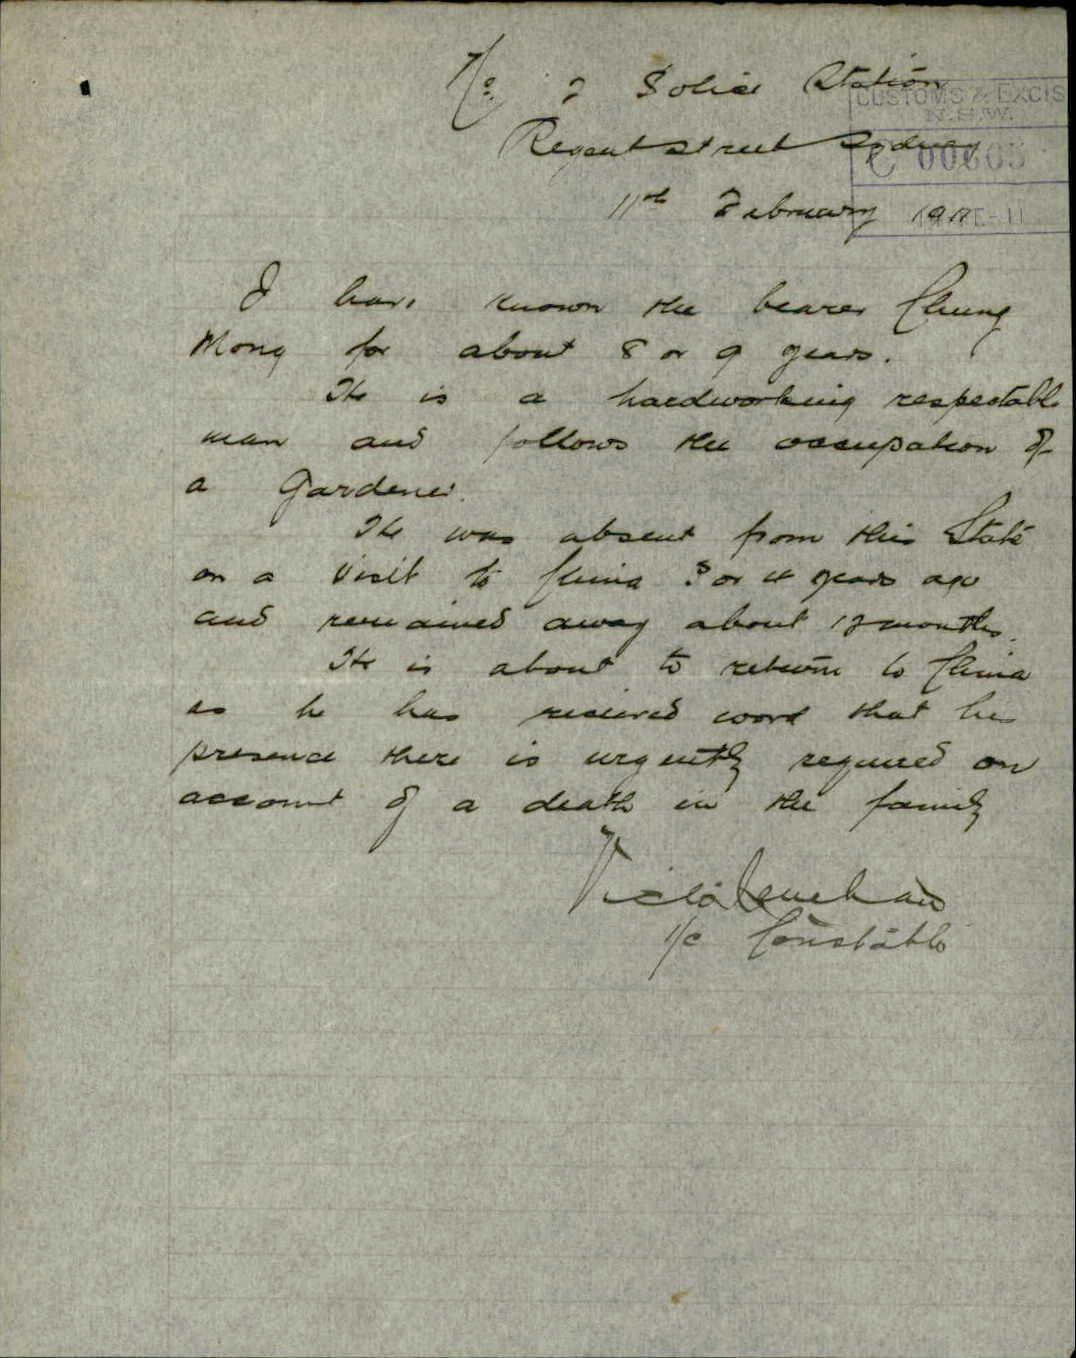 No. 2 Police Station
CUSTOMS & EXCIS
N.S.W.
Regent Street Sydney
C 00605
11th February 1911
I have known the bearer Chung
Mong for about 8 or 9 years.
He is a hardworking respectable
man and follows the occupation of
a Gardener.
He was absent from this State
on a visit to China 3 or 4 years ago
and remained away about 12 months.
He is about to return to China
as he has recieved word that his
presence there is urgently required on
account of a death in the family
1/c Constable